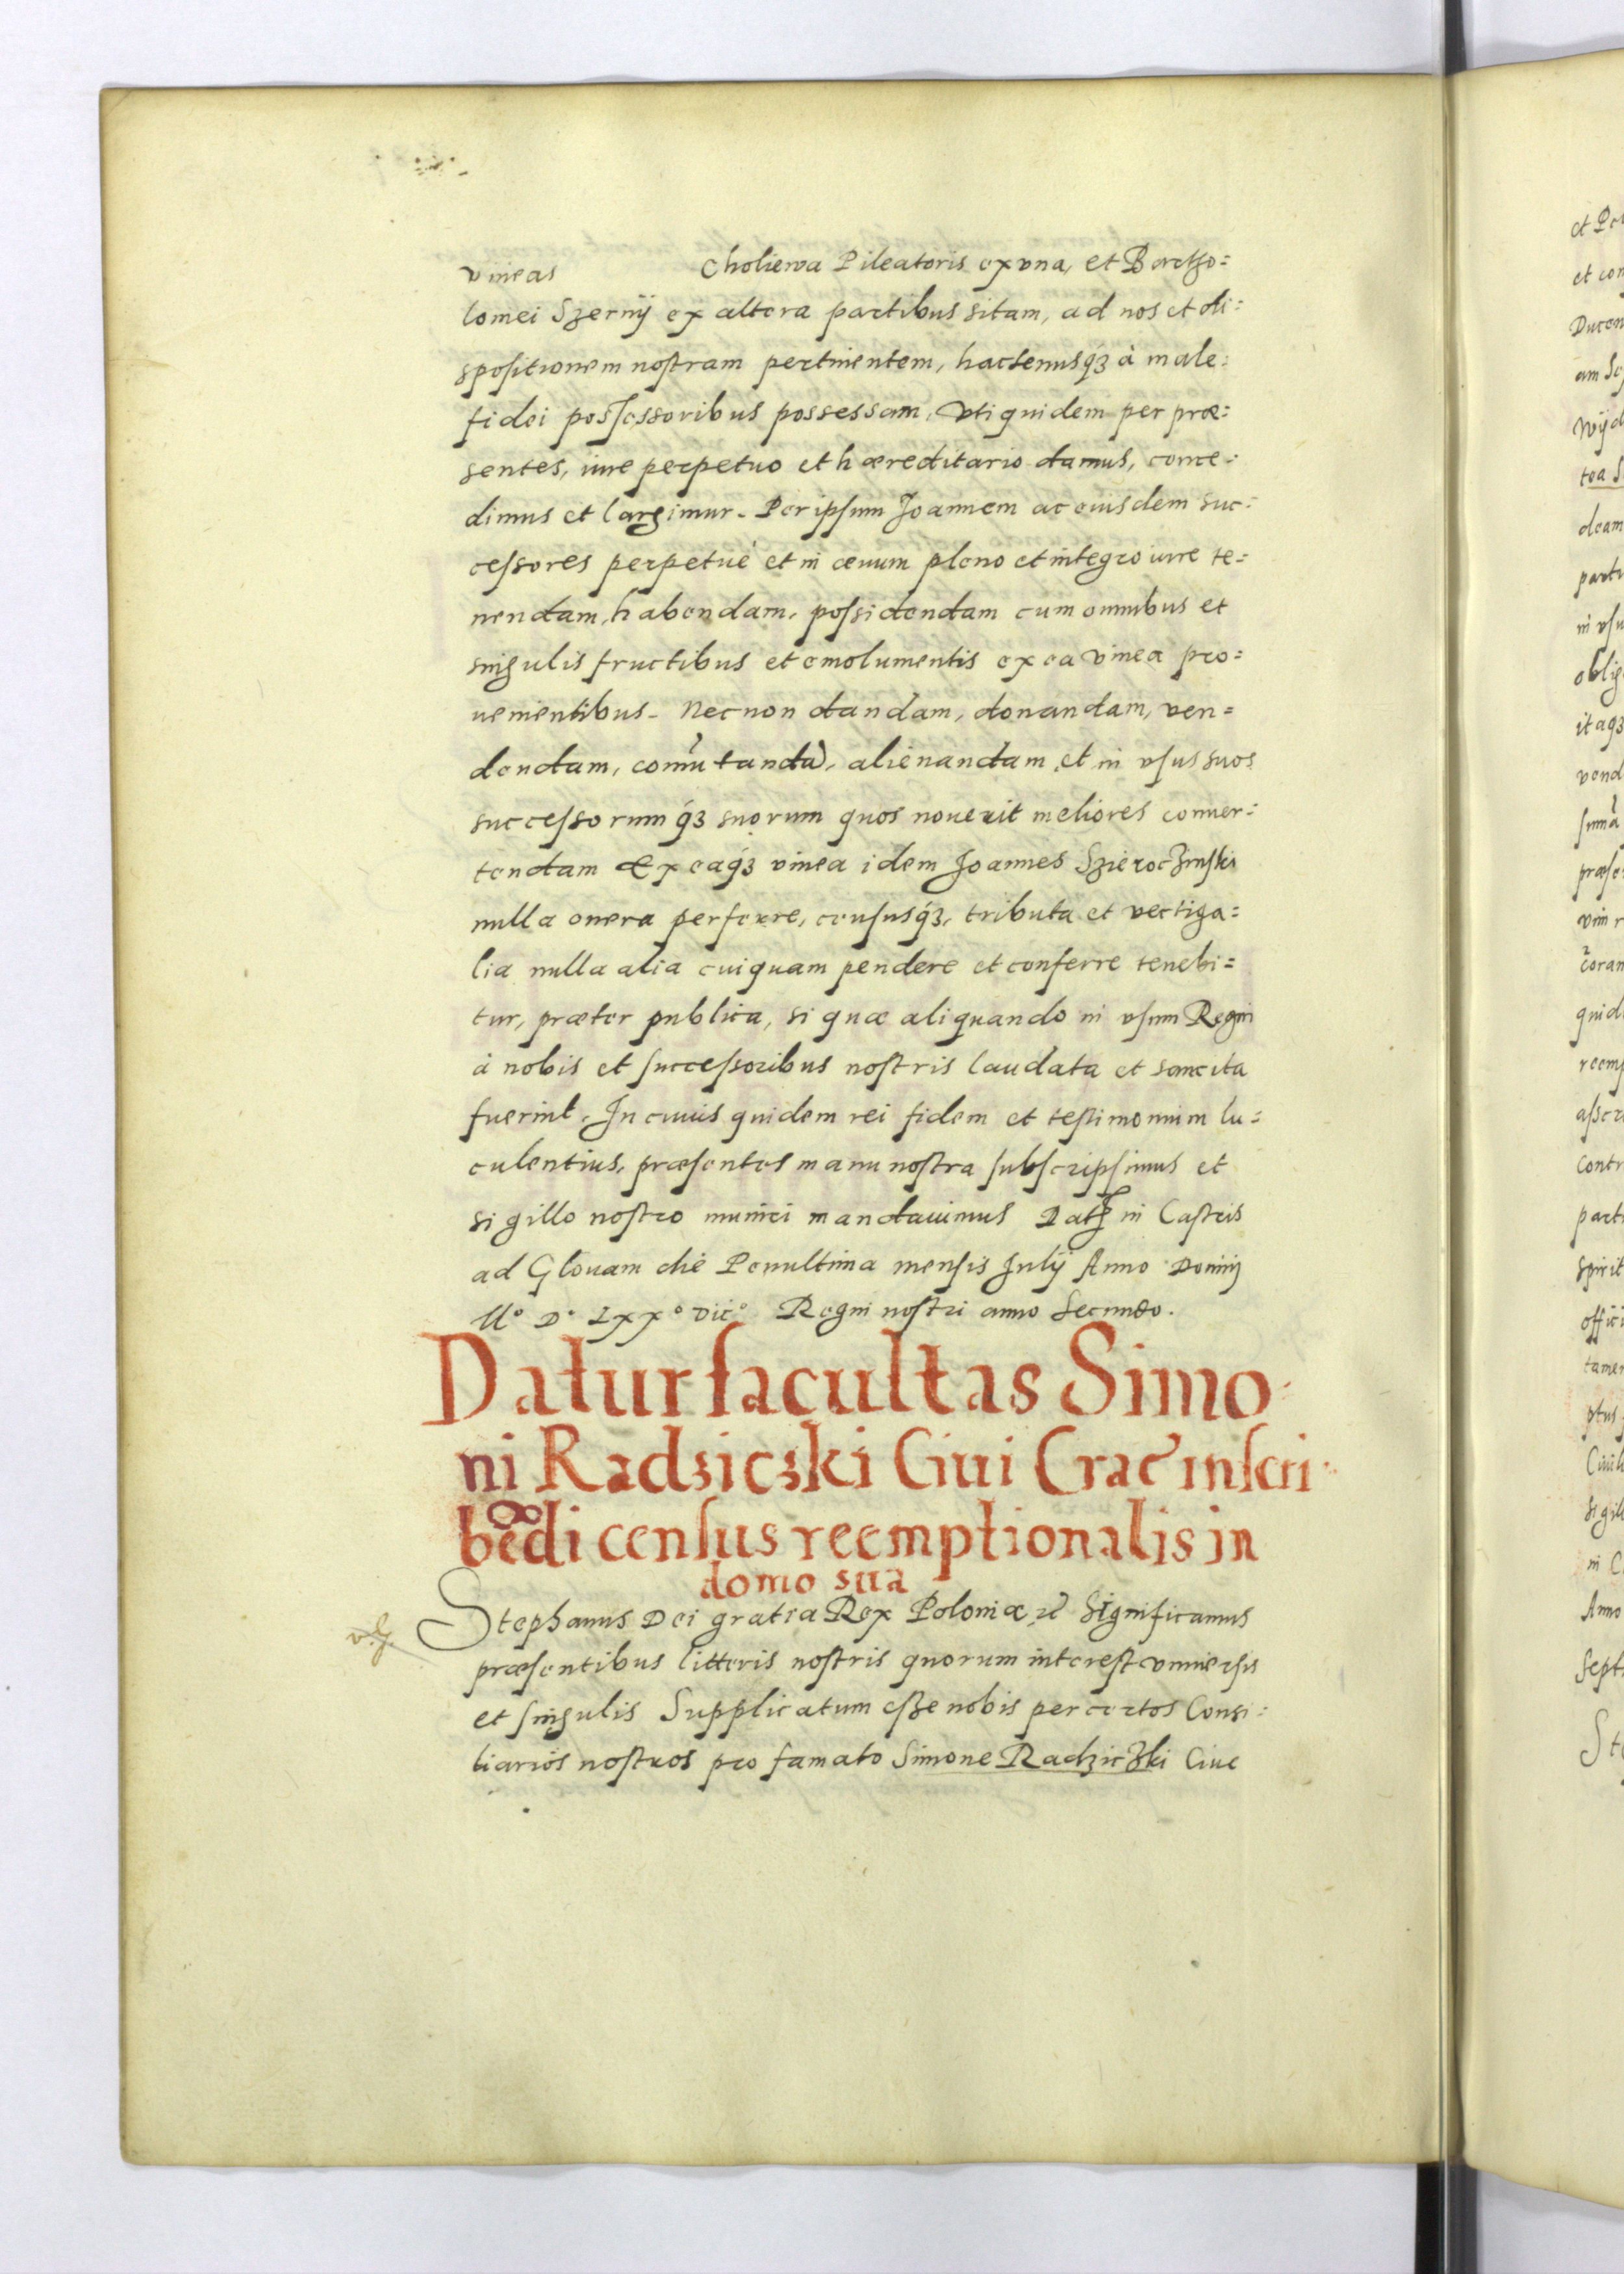 vineas Choliewa Pileatoris ex vna, et Bartho=
lomei Szernÿ ex altera partibus sitam, ad nos et di=
spositionem nostram pertinentem, hactenusq́ꝫ à male=
fidei possessoribus possessam, Vti quidem per præ=
sentes, iure perpetuo et hæreditario damus, conce=
dimus et largimur. Per ipsum Joannem ac eiusdem suc=
cessores perpetuè et in æuum pleno et integro iure te=
nendam, habendam, possidendam cum omnibus et
singulis fructibus et emolumentis ex ea vinea pro=
uenientibus. Nec non dandam, donandam, ven=
dendam, com̃utandã, alienandam et in vsus suos
successorumq́ꝫ suorum quos nouerit meliores conuer=
tendam Ex eaq́ꝫ vinea idem Joannes Szieroczinski
nulla onera perferre, censusq́ꝫ, tributa et vectiga=
lia nulla alia cuiquam pendere et conferre tenebi=
tur, præter publica, si quæ aliquando in vsum Regni
à nobis et successoribus nostris laudata et sancita
fuerint. In cuius quidem rei fidem et testimonium lu=
culentius, præsentes manu nostra subscripsimus et
sigillo nostro muniri mandauimus Datꝭ in Castris
ad Glouam die Penultima mensis Julÿ Anno Domini
M° D° LXX° vii° Regni nostri anno Secundo.
Datur facultas Simo
ni Radsicski Ciui Crac̃ inscri
bēdi census reemptionalis in
domo sua
Stephanus Dei gratia Rex Poloniæ ꝛc̃ Significamus
præsentibus litteris nostris quorum interest vniuersis
et singulis Supplicatum esse nobis per certos Consi=
liarios nostros pro famato Simone Radziczki Ciue